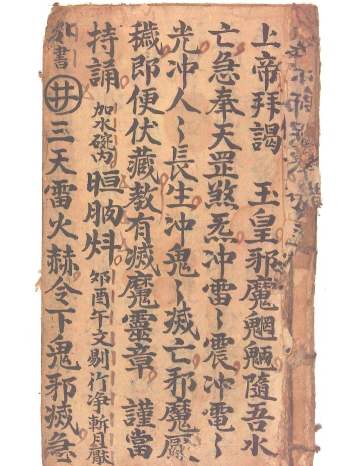 上帝拜謁 玉皇邪魔魍魎隨吾水
亡急奉天罡煞炁冲雷〻震冲電〻
光冲人〻長生冲鬼〻滅亡邪魔厭
穢即便伏藏教有滅魔靈章 謹當
持誦 加水碗內 晅 卯酉午文剔行净斬目厭
書 井 三天雷火赫令下鬼邪滅急